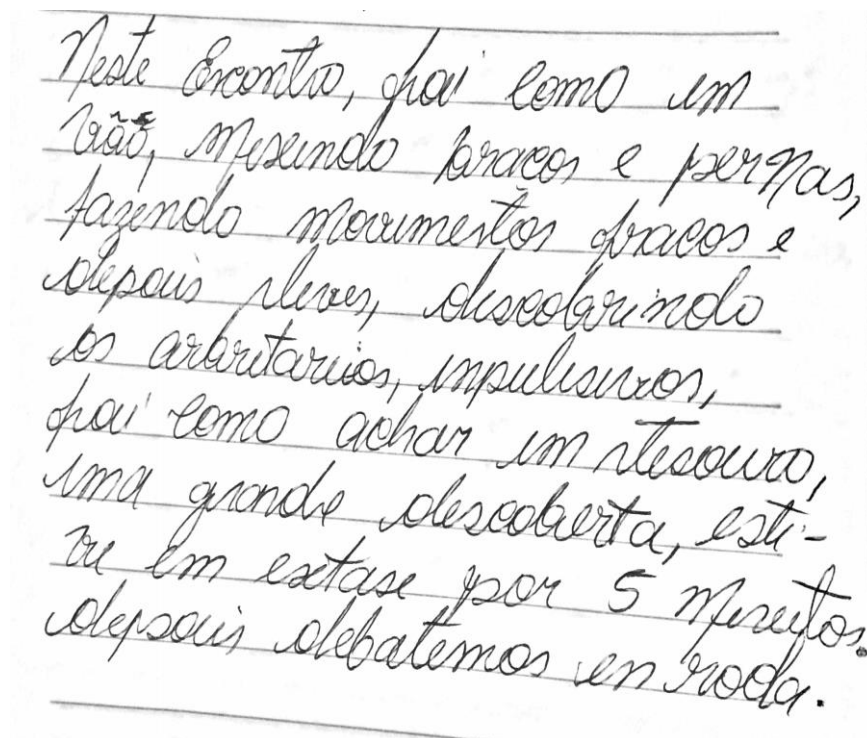 Neste Encontro, foi como um
vão, mexendo braços e pernas,
fazendo movimentos fracos e
depois leves, descobrindo
os arbritarios, impulsivos,
foi como achar um tesouro,
uma grande descoberta, esti-
ve em extase por 5 minutos.
depois debatemos em roda.